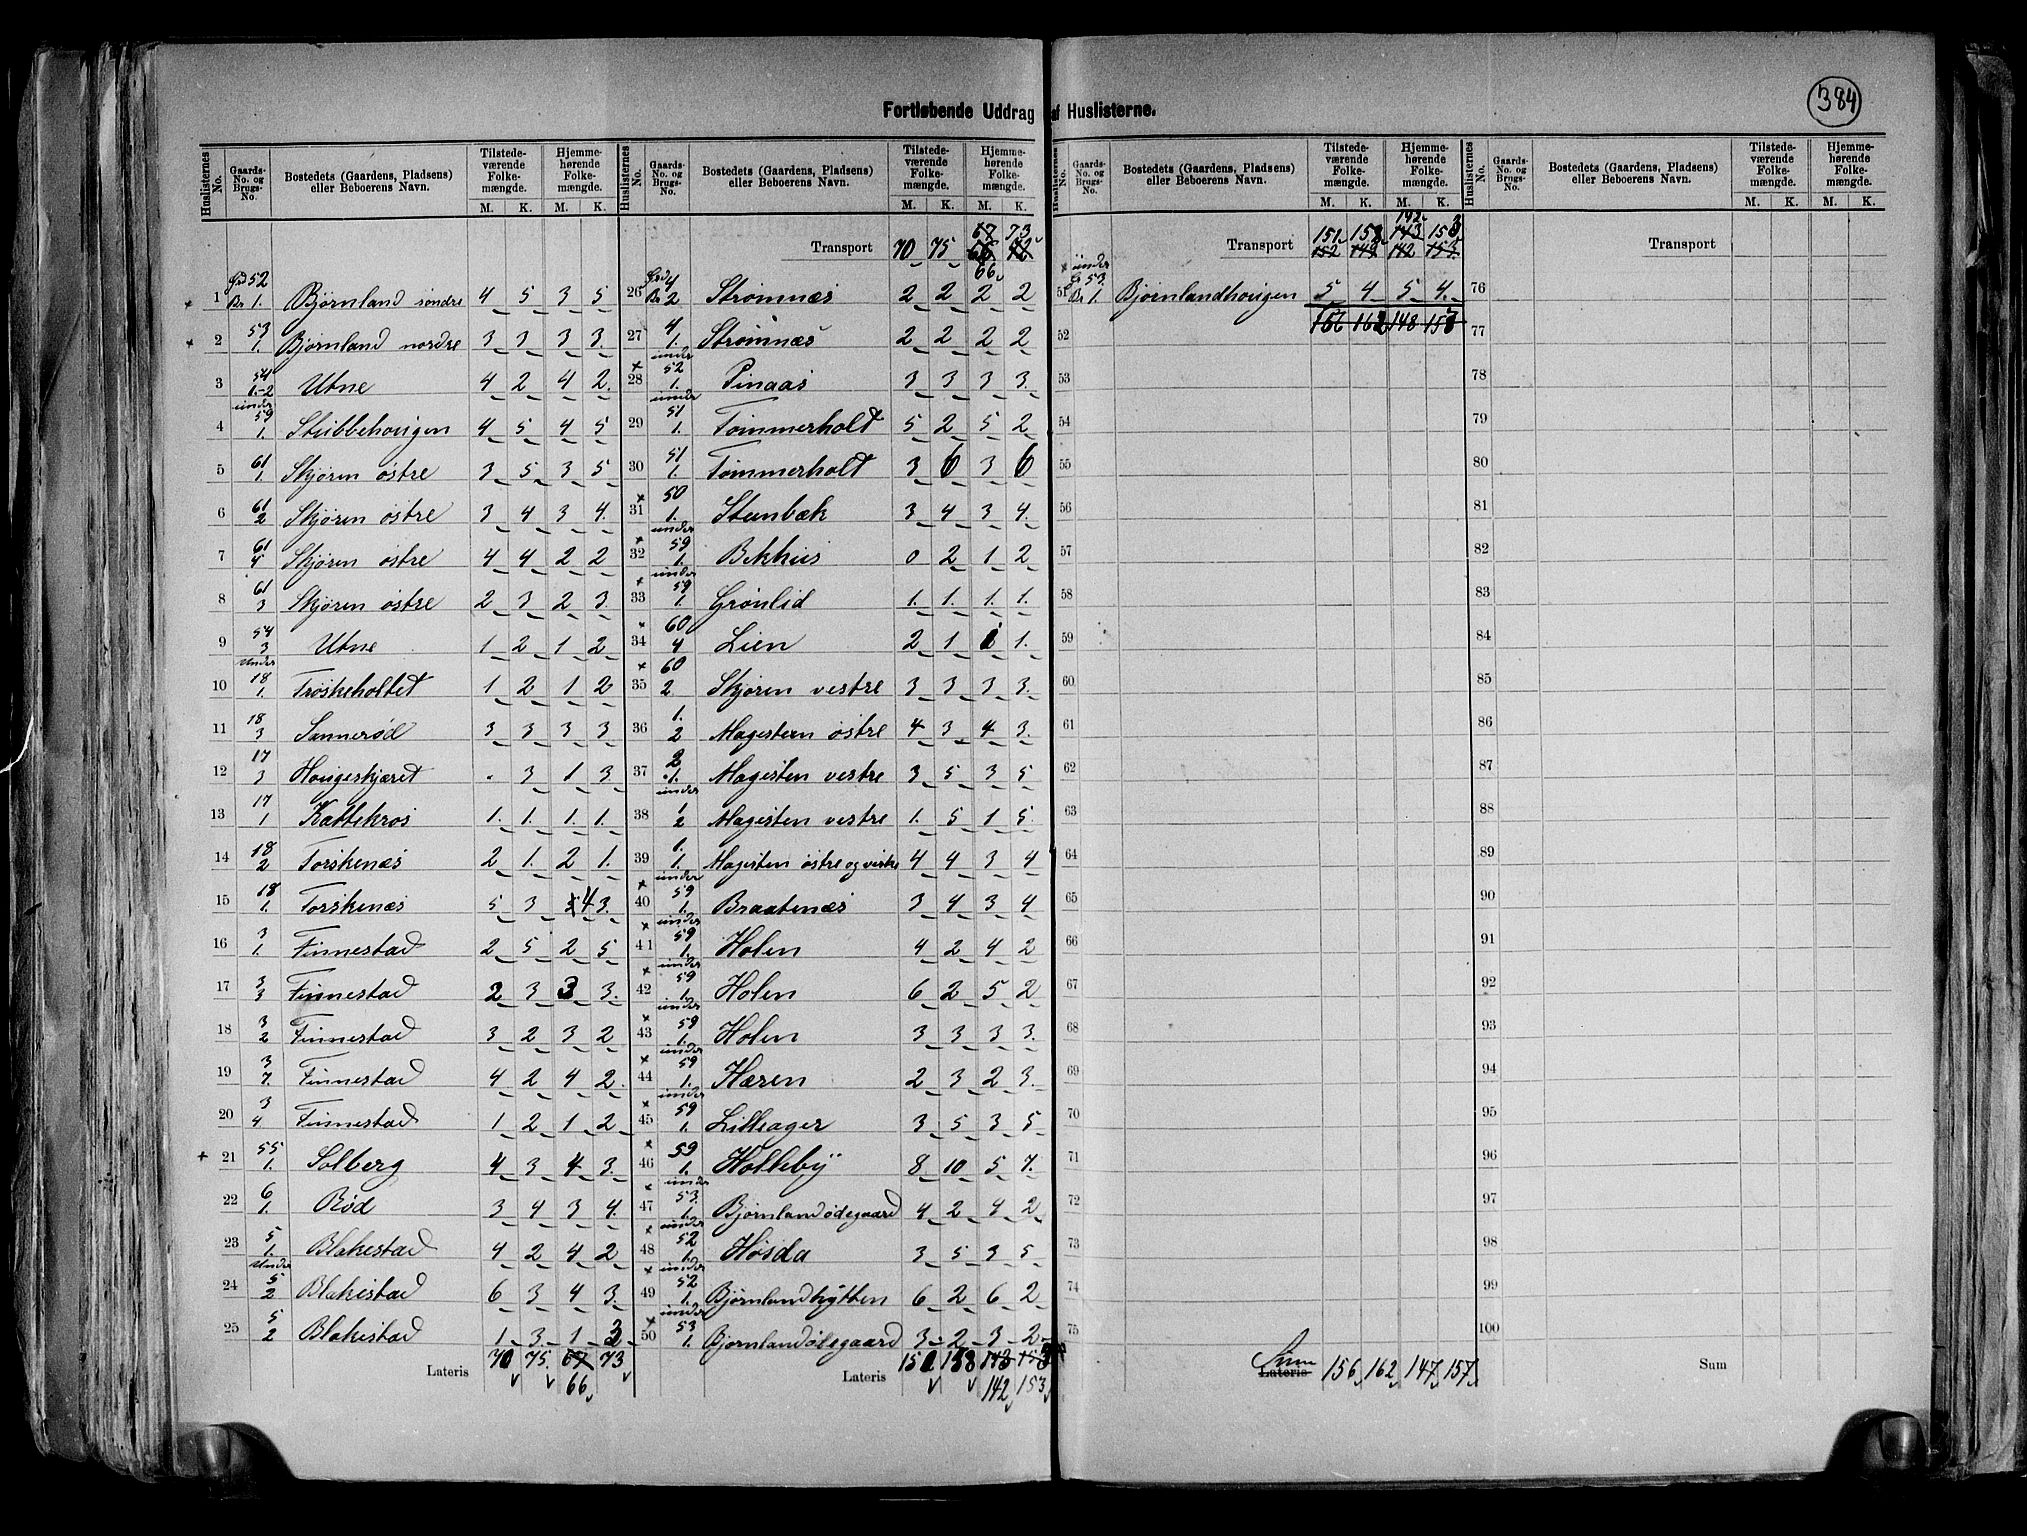 384
Fortløbende Uddrag af Huslisterne.
Huslisternes No. Gaards-No. og Brugs-No. Bostedets (Gaardens, Pladsens) eller Beboerens Navn. Tilstedeværende Folkemængde. M. K. Hjemmehørende Folkemængde. M. K.
1 Gd 52 Br 1. Bjørnland søndre 4 5 3 5
2 53 1. Bjørnland nordre 3 3 3 3.
3 54 1.-2 Utne 4 2 4 2.
4 under 59 1. Stubbehougen 4 5 4 5
5 61 1. Skjøren østre 3 5 3 5
6 61 2 Skjøren østre 3 4 3 4.
7 61 4 Skjøren østre 4 4 2 2
8 61 3 Skjøren østre 2 3 2 3.
9 54 3 Utne 1 2 1 2
10 Under 18 1. Trøskeholtet 1 2 1 2
11 18 3 Sannerød 3 3 3 3
12 17 3 Hougeskjæret . 3 1 3
13 17 1 Kattekros 1. 1. 1. 1.
14 18 2 Torskenæs 2 1. 2 1.
15 18 1. Torskenæs 5 3 4 3.
16 3 1. Finnestad 2 5 2 5
17 3 3 Finnestad 2 3 3 3.
18 3 2 Finnestad 3 2 3 2
19 3 7. Finnestad 4 2 4 2.
20 3 4 Finnestad 1 2 1 2
21 55 1. Solberg 4 3 4 3.
22 6 1. Rød 3 4 3 4.
23 5 1. Blakestad 4 2 4 2
24 Under 5 2 Blakestad 6 3 4 3.
25 5 2 Blakestad 1 3 1 3
Lateris 70 75. 67 73
66
Huslisternes No. Gaards-No. og Brugs-No. Bostedets (Gaardens, Pladsens) eller Beboerens Navn. Tilstedeværende Folkemængde. M. K. Hjemmehørende Folkemængde. M. K.
67 73
Transport 70 75
66
26 Gd 4 Br 2 Strømnæs 2 2 2 2
27 4 1. Strømnæs 2 2 2 2
28 under 52 1. Pinaas 3 3 3 3.
29 under 51 1. Tømmerholt 5 2 5 2
30 51 1. Tømmerholt 3 6 3 6
31 50 1. Stenbæk 3 4 3 4.
32 under 59 1. Bekhus 0 2 1 2
33 under 59 1. Grønlid 1. 1. 1. 1.
34 60 4 Lien 2 1 1 1.
35 60 2 Skjøren vestre 3 3 3 3.
36 1. 2 Magesten østre 4 3 4 3.
37 2 1. Magesten vestre 3 5 3 5
38 under 1. 2 Magesten vestre 1. 5 1 5
39 1. 1. Magesten østre og vestre 4 4 3 4
40 under 59 1. Braatenæs 3 4 3 4
41 under 59 1. Holen 4 2 4 2
42 under 59 1. Holen 6 2 5 2
43 under 59 1. Holen 3 3 3 3.
44 under 59 1. Hæren 2 3 2 3.
45 under 59 1. Lilleager 3 5 3 5
46 59 1. Holkeby 8 10 5 7.
47 under 53. 1. Bjørnlandødegaard 4 2 4 2
48 under 52 1. Høsda 3 5 3 5
49 under 52 1. Bjørnlandhytten 6 2 6 2
50 under 53 1. Bjørnlandødegaard 3 2 3 2
Lateris 151 158 143 153
142 153
Huslisternes No. Gaards-No. og Brugs-No. Bostedets (Gaardens, Pladsens) eller Beboerens Navn. Tilstedeværende Folkemængde. M. K. Hjemmehørende Folkemængde. M. K.
142
Transport 151 158 143 153
152 149 142 153
51 under Gd 53. Br 1. Bjørnlandhougen 5 4 5 4.
156 162 148 157
52
53
54
55
56
57
58
59
60
61
62
63
64
65
66
67
68
69
70
71
72
73
74
75
Sum
Lateris 156 162 147 157
Huslisternes No. Gaards-No. og Brugs-No. Bostedets (Gaardens, Pladsens) eller Beboerens Navn. Tilstedeværende Folkemængde. M. K. Hjemmehørende Folkemængde. M. K.
Transport
76
77
78
79
80
81
82
83
84
85
86
87
88
89
90
91
92
93
94
95
96
97
98
99
100
Sum